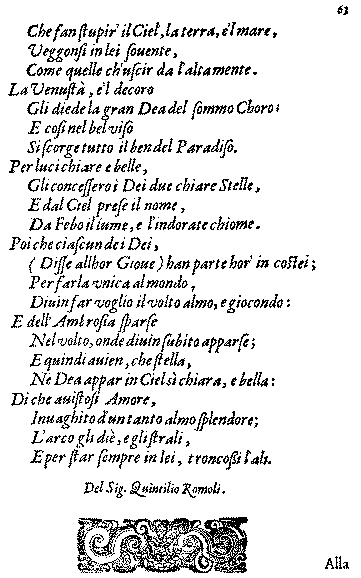 63
Che fan ſtupir' il Ciel, la terra, e'l mare,
Veggonſi in lei ſouente,
Come quelle ch'uſcir da l'alta mente.
La Venuſtà, e'l decoro
Gli diede la gran Dea del ſommo Choro:
E coſi nel bel viſo
Si ſcorge tutto il ben del Paradiſo.
Per luci chiare e belle,
Gli conceſſero i Dei due chiare Stelle,
E dal Ciel preſe il nome,
Da Febo il lume, e l'indorate chiome.
Poi che ciaſcun dei Dei,
(Diſſe allhor Gioue) han parte hor' in coſtei;
Per farla vnica al mondo,
Diuin far voglio il volto almo, e giocondo:
E dell' Ambroſia ſparſe
Nel volto, onde diuin ſubito apparſe;
E quindi auien, che ſtella,
Ne Dea appar in Ciel sì chiara, e bella:
Di che auiſtoſi Amore,
Inuaghito d'un tanto almo ſplendore;
L'arco gli diè, e gli ſtrali,
E per ſtar ſempre in lei, troncoſſi l'ali.
Del Sig. Quintilio Romoli.
Alla